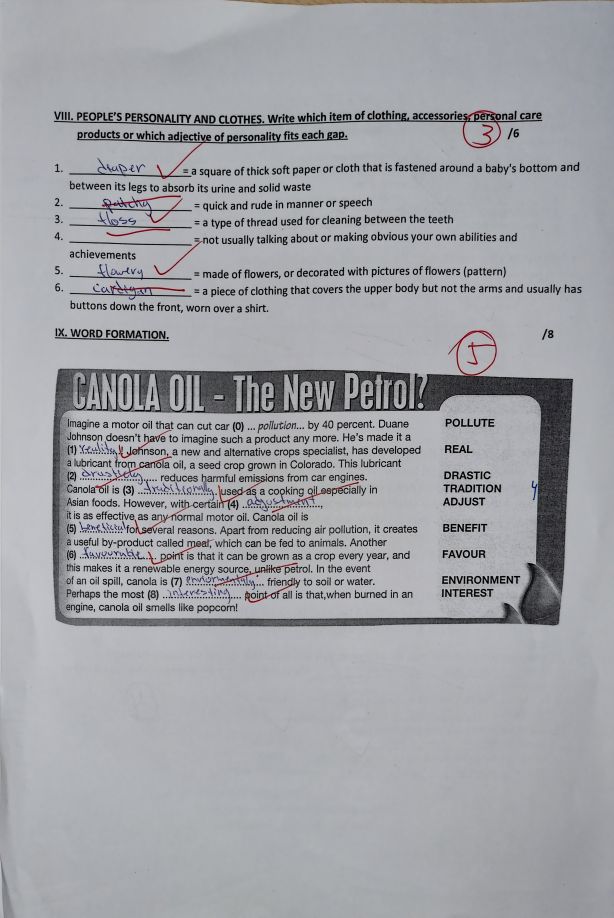 VIII. PEOPLE'S PERSONALITY AND CLOTHES. Write which item of clothing, accessories, personal care
products or which adjective of personality fits each gap.
3 /6
1. diaper = a square of thick soft paper or cloth that is fastened around a baby's bottom and
between its legs to absorb its urine and solid waste
2. patchy = quick and rude in manner or speech
3. floss = a type of thread used for cleaning between the teeth
4. = not usually talking about or making obvious your own abilities and
achievements
5. flowery = made of flowers, or decorated with pictures of flowers (pattern)
6. cardigan = a piece of clothing that covers the upper body but not the arms and usually has
buttons down the front, worn over a shirt.
IX. WORD FORMATION.
5 /8
CANOLA OIL - The New Petrol?
Imagine a motor oil that can cut car (0) ... pollution... by 40 percent. Duane POLLUTE
Johnson doesn't have to imagine such a product any more. He's made it a
(1) reality! Johnson, a new and alternative crops specialist, has developed REAL
a lubricant from canola oil, a seed crop grown in Colorado. This lubricant
(2) ... reduces harmful emissions from car engines. DRASTIC
Canola oil is (3) traditionally used as a cooking oil especially in TRADITION
Asian foods. However, with certain (4) adjustment, ADJUST
4
it is as effective as any normal motor oil. Canola oil is
(5) beneficial for several reasons. Apart from reducing air pollution, it creates BENEFIT
a useful by-product called meal, which can be fed to animals. Another
(6) favourable point is that it can be grown as a crop every year, and FAVOUR
this makes it a renewable energy source, unlike petrol. In the event
of an oil spill, canola is (7) ... friendly to soil or water. ENVIRONMENT
Perhaps the most (8) interesting ... point of all is that,when burned in an INTEREST
engine, canola oil smells like popcorn!